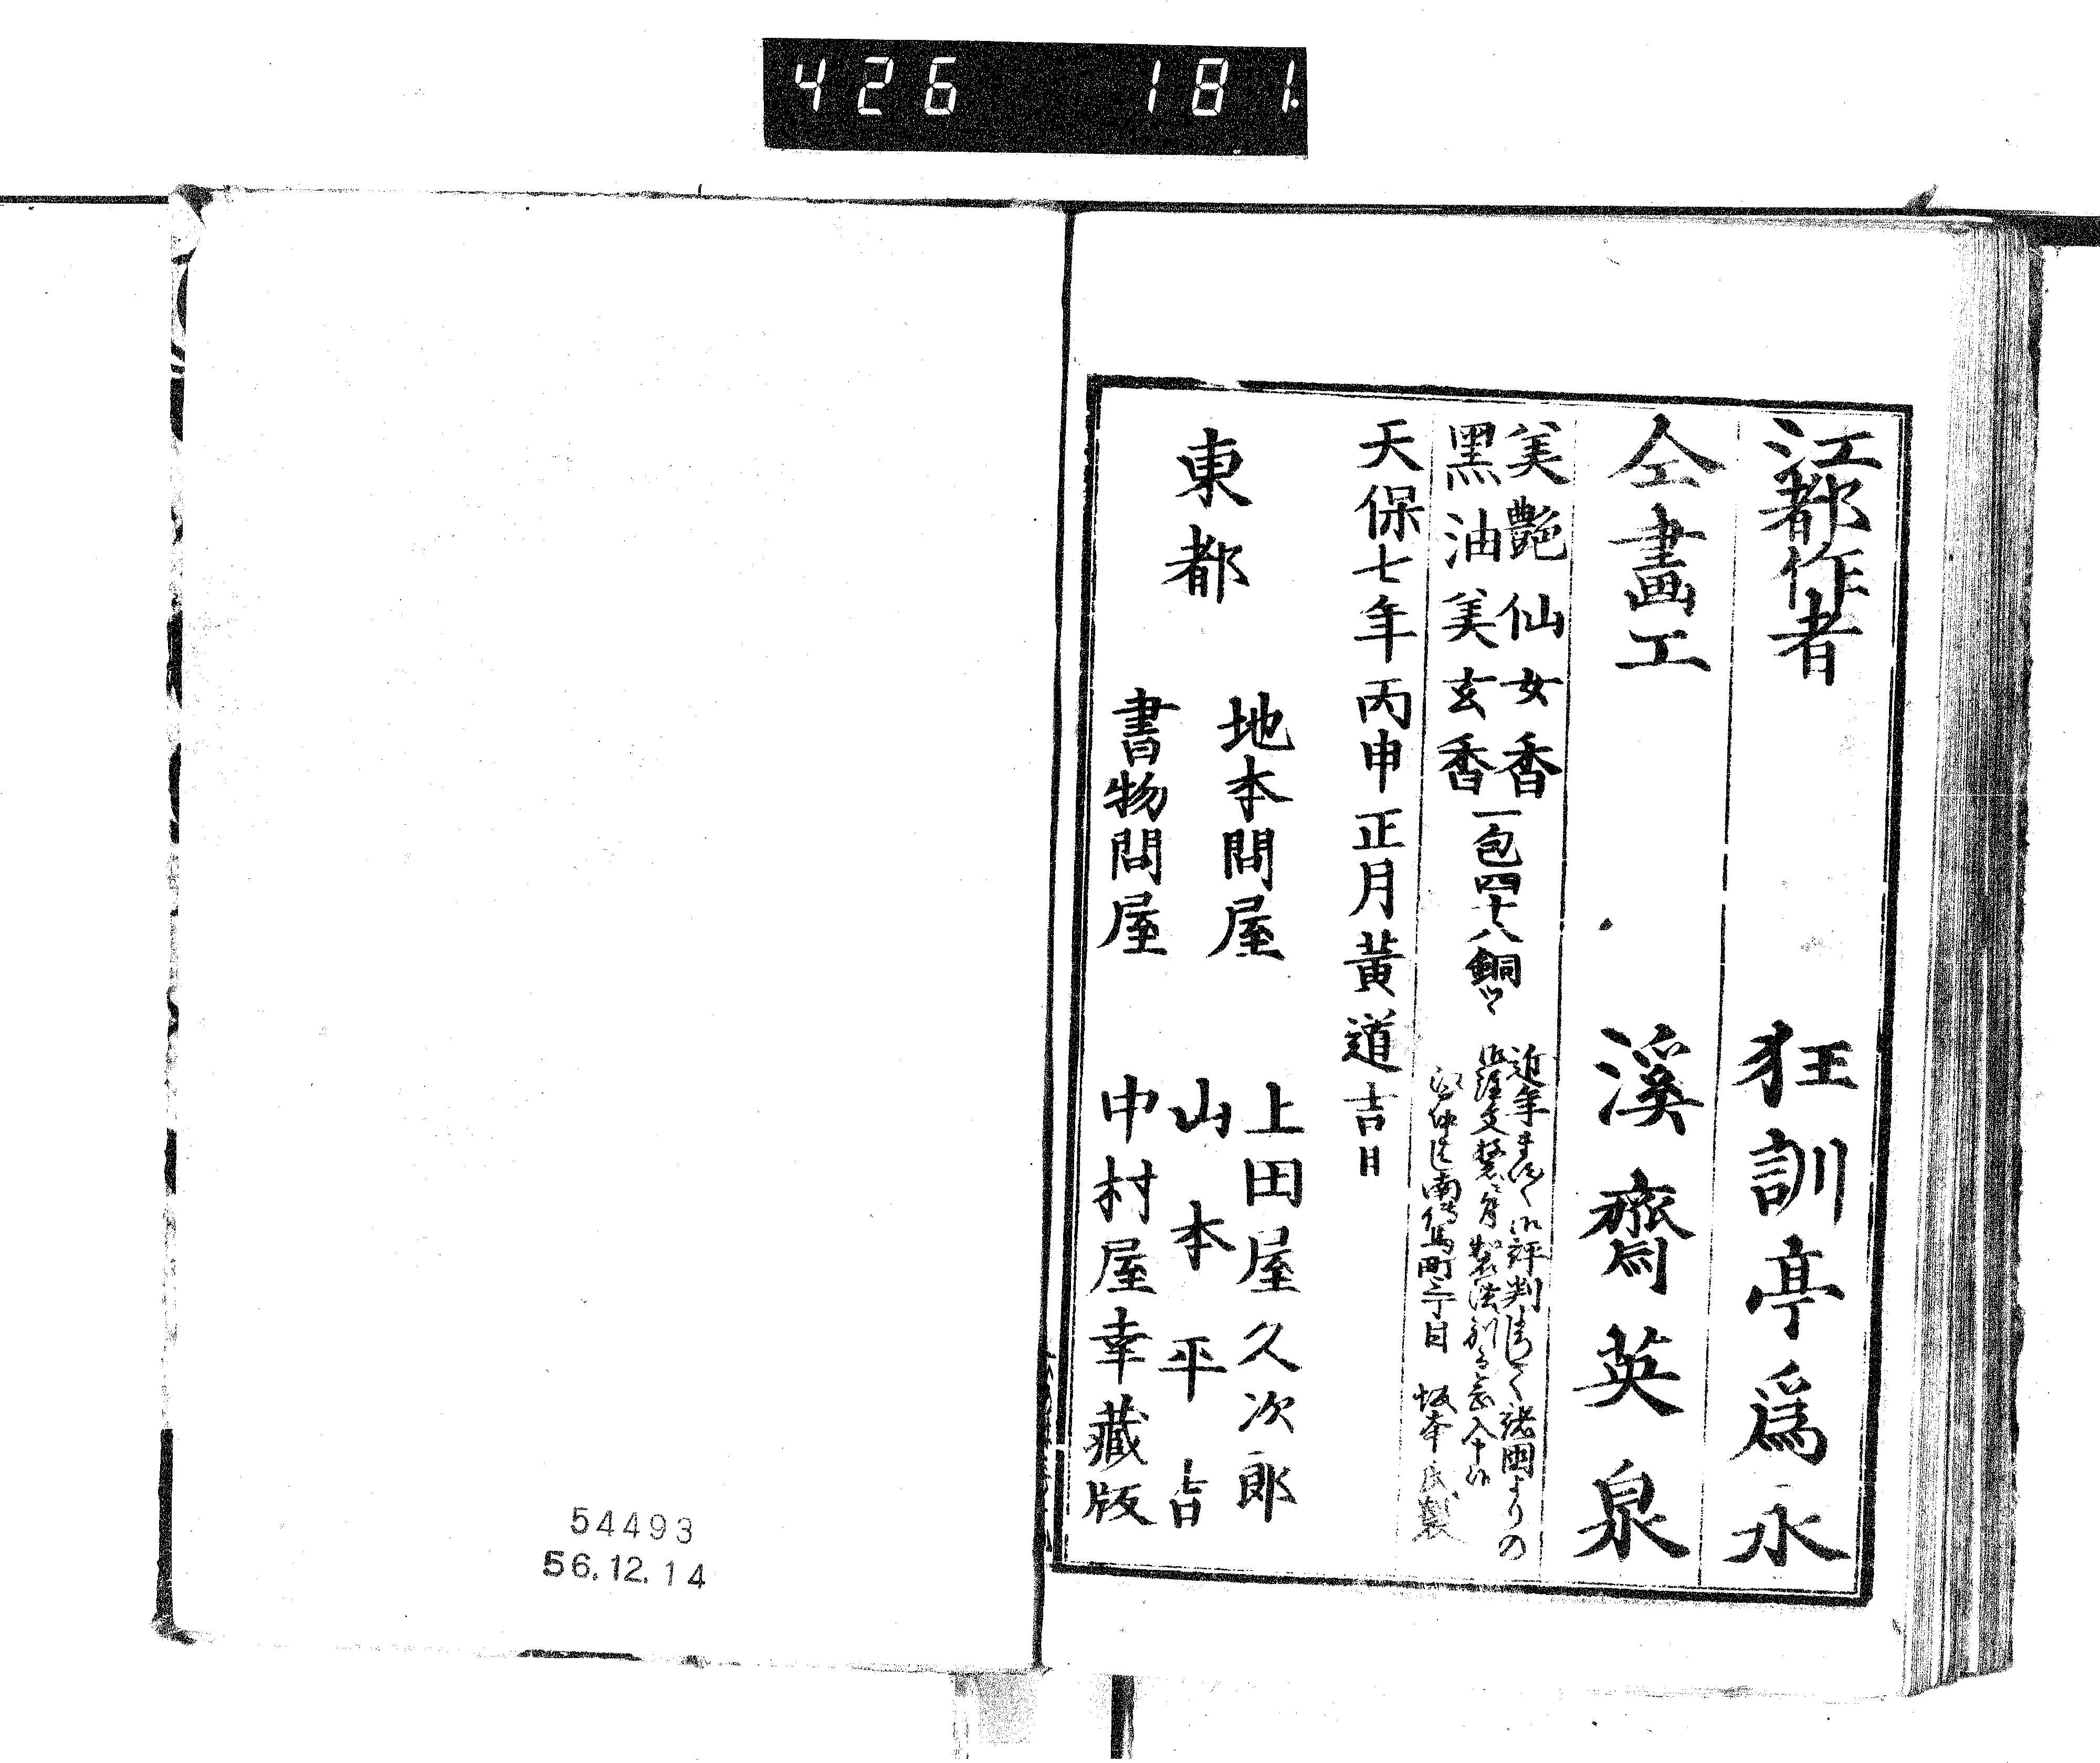 426 181.
江都作者 狂訓亭爲永
仝畫工 溪齋英泉
美艶仙女香
黒油美玄香
一包四十八銅ヅヽ
近年ます〳〵御評判よろしく諸国よりの
南傳馬町三丁目 坂本氏製
天保七年丙申正月黄道吉日
東都
地本問屋
書物問屋
上田屋久次郎
山本平吉
中村屋幸藏版
54493
56.12.14